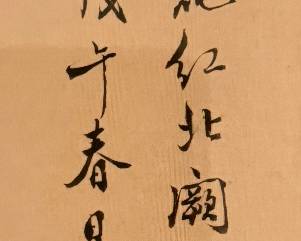 红北阙
戊午春日